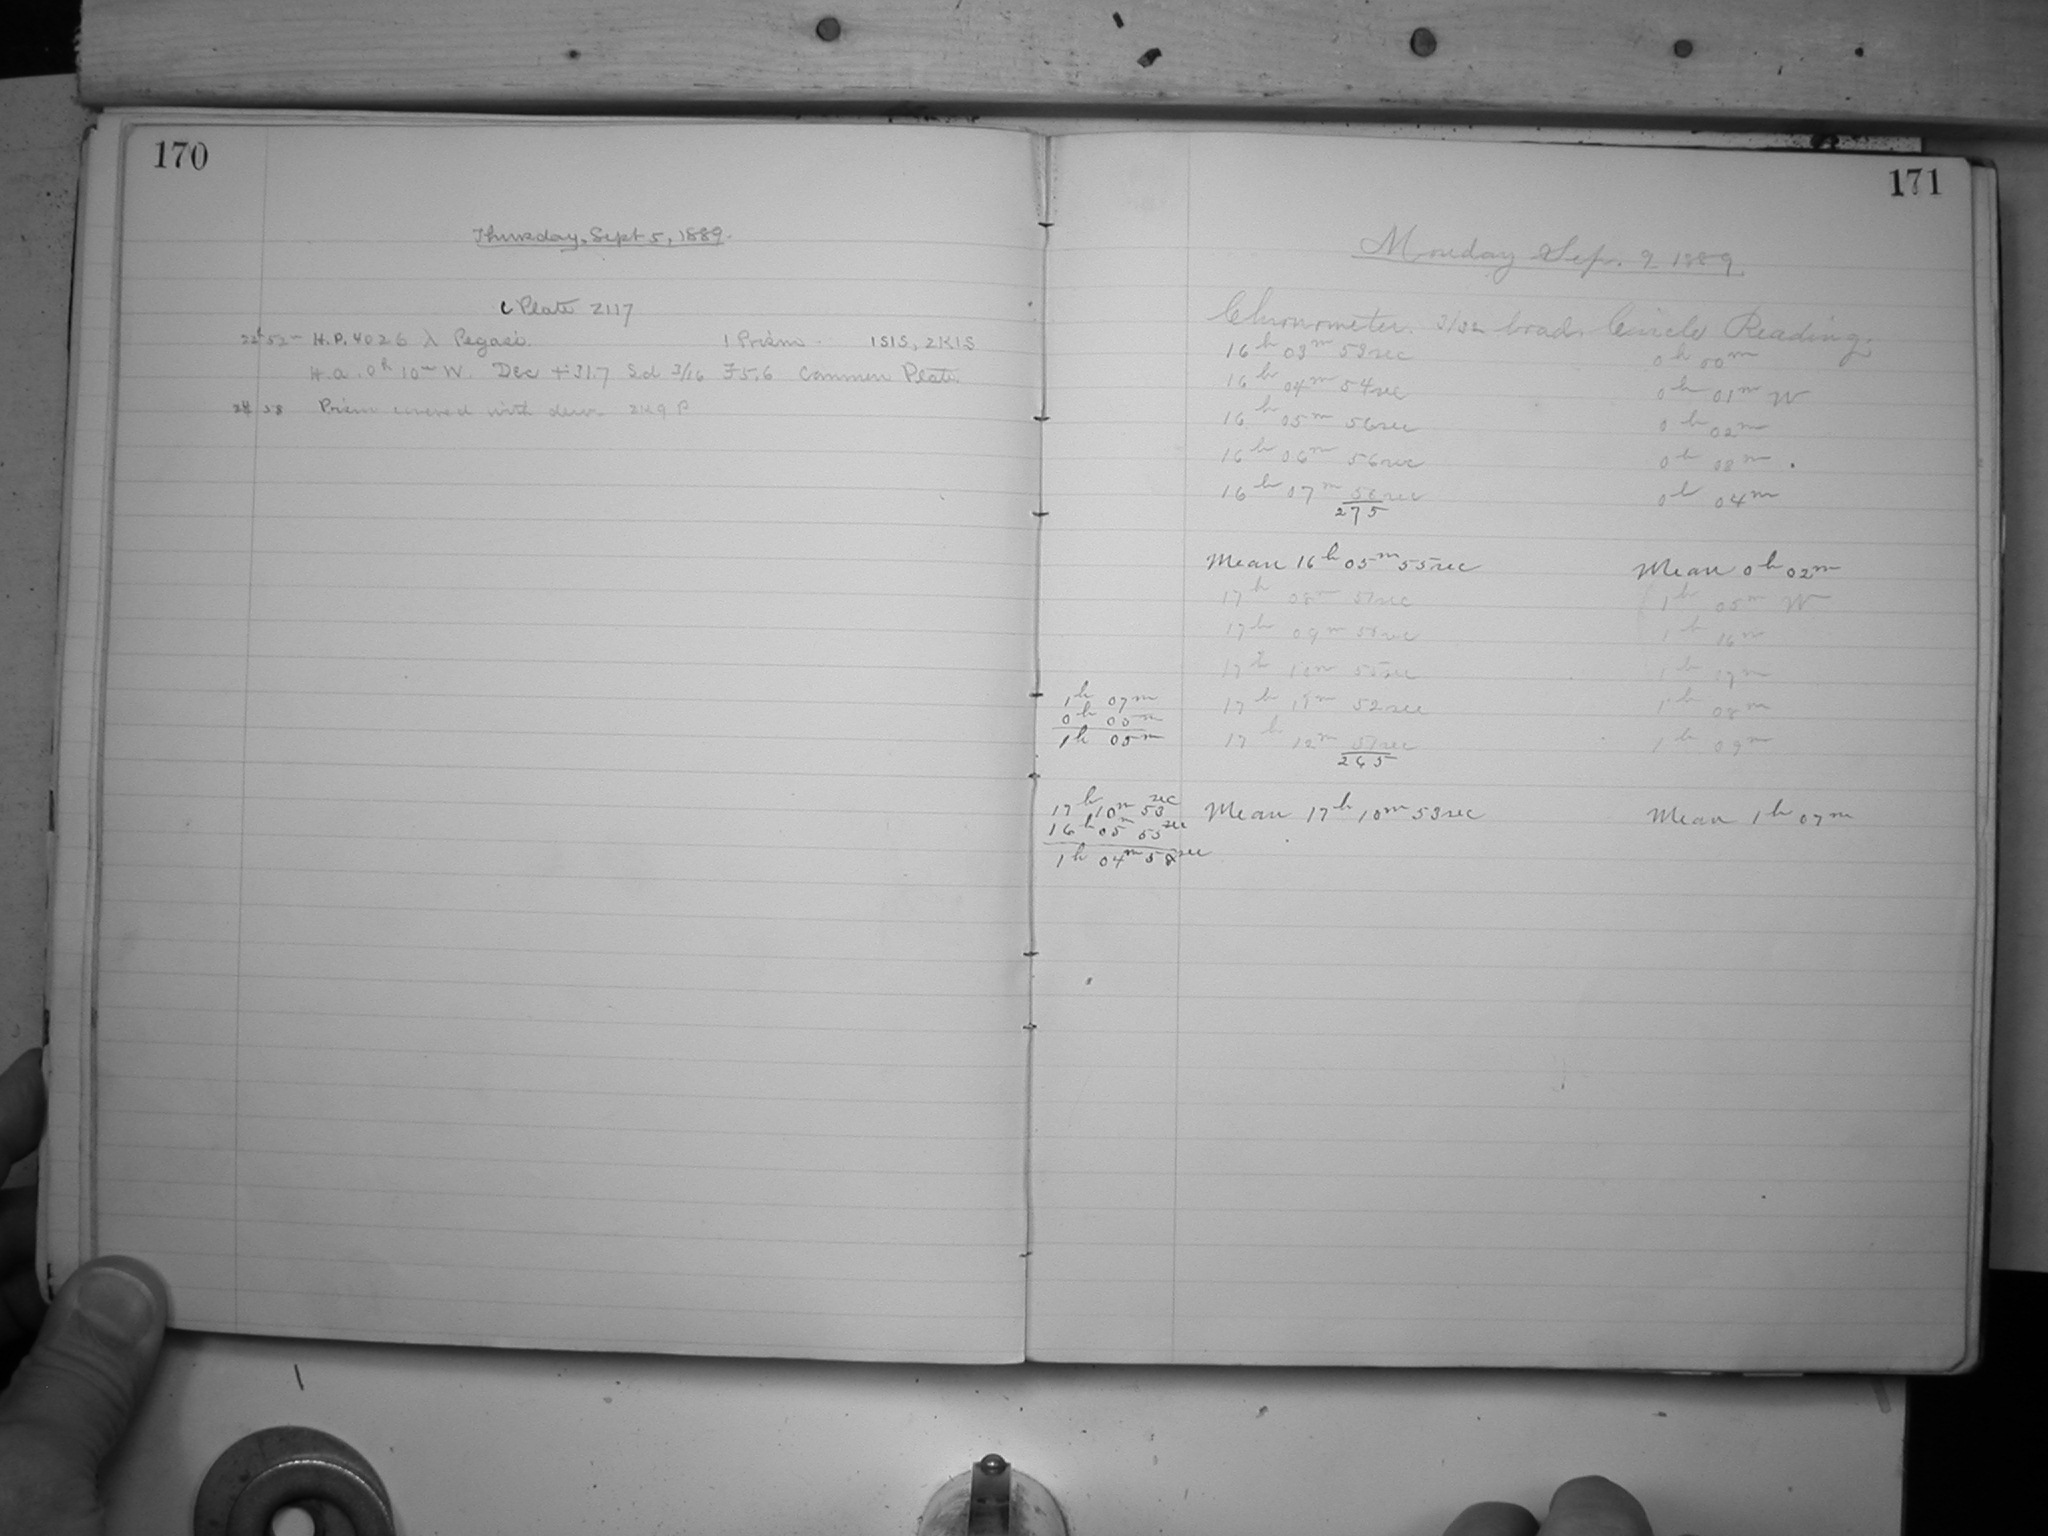 170
Thursday, Sept 5, 1889.
C Plate 2117
22h 52m H.P. 4026 λ Pegasi. 1 Prism 1S1S, 2K1S
H.a. 0h 10m W. Dec +31.7 Sd 3/16 F5.6 Common Plate.
58 Prism covered with dew. 2K9 P
171
Monday Sep. 9 1889
Chronometer. 3/32 broad. Circle Reading.
16h 03m 53sec 0h 00m
16h 04m 54sec 0h 01m W
16h 05m 56sec 0h 02m
16h 06m 56sec 0h 03m
16h 07m 56sec 0h 04m
275
Mean 16h 05m 55sec Mean 0h 02m
17h 08m 51sec 1h 05m W
17h 09m 1h 16m
17h 10m 55sec 1h 17m
17h 11m 52sec 1h 08m
17h 12m 51sec 1h 09m
265
1h 07m
0h
1h 05m
17h 10m 53sec
16h 05m 55sec
1h 04m 58sec
Mean 17h 10m 53sec Mean 1h 07m